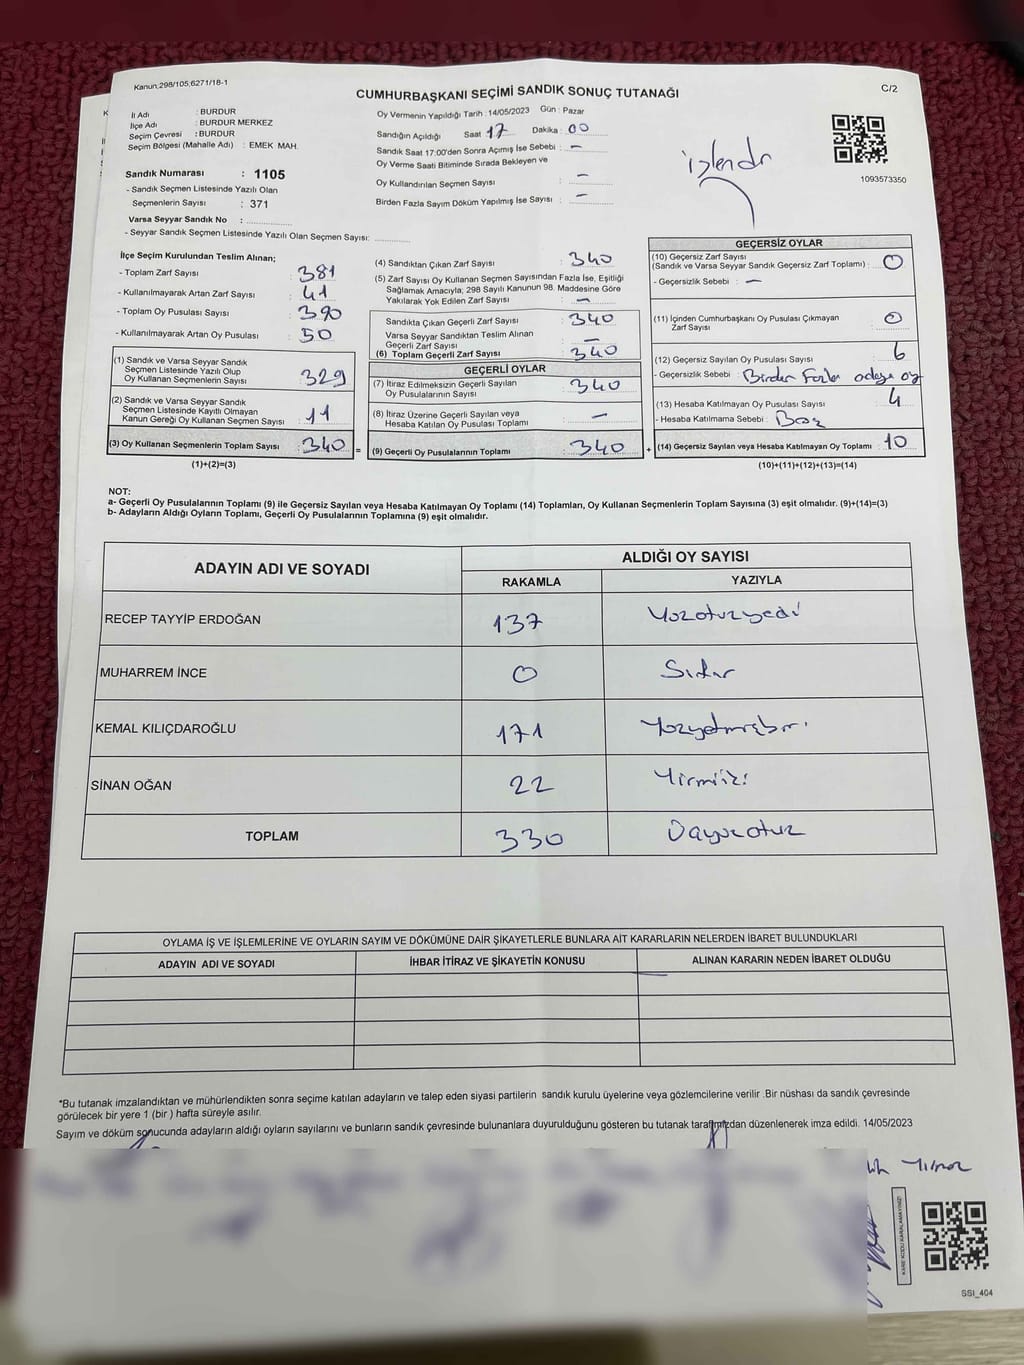 Kanun,298/105,6271/18-1
CUMHURBAŞKANI SEÇİMİ SANDIK SONUÇ TUTANAĞI
C/2
İl Adı : BURDUR
İlçe Adı : BURDUR MERKEZ
Seçim Çevresi : BURDUR
Seçim Bölgesi (Mahalle Adı) : EMEK MAH.
Sandık Numarası : 1105
- Sandık Seçmen Listesinde Yazılı Olan
Seçmenlerin Sayısı : 371
Varsa Seyyar Sandık No :
- Seyyar Sandık Seçmen Listesinde Yazılı Olan Seçmen Sayısı:
Oy Vermenin Yapıldığı Tarih : 14/05/2023 Gün : Pazar
Sandığın Açıldığı Saat 17 Dakika : 00
Sandık Saat 17:00'den Sonra Açımış İse Sebebi : -
Oy Verme Saati Bitiminde Sırada Bekleyen ve
Oy Kullandırılan Seçmen Sayısı : -
Birden Fazla Sayım Döküm Yapılmış İse Sayısı : -
işlendi
1093573350
İlçe Seçim Kurulundan Teslim Alınan;
- Toplam Zarf Sayısı : 381
- Kullanılmayarak Artan Zarf Sayısı : 41
- Toplam Oy Pusulası Sayısı : 390
- Kullanılmayarak Artan Oy Pusulası : 50
(1) Sandık ve Varsa Seyyar Sandık
Seçmen Listesinde Yazılı Olup
Oy Kullanan Seçmenlerin Sayısı : 329
(2) Sandık ve Varsa Seyyar Sandık
Seçmen Listesinde Kayıtlı Olmayan
Kanun Gereği Oy Kullanan Seçmen Sayısı : 11
(3) Oy Kullanan Seçmenlerin Toplam Sayısı : 340 =
(1)+(2)=(3)
(4) Sandıktan Çıkan Zarf Sayısı : 340
(5) Zarf Sayısı Oy Kullanan Seçmen Sayısından Fazla İse, Eşitliği
Sağlamak Amacıyla, 298 Sayılı Kanunun 98. Maddesine Göre
Yakılarak Yok Edilen Zarf Sayısı : -
Sandıkta Çıkan Geçerli Zarf Sayısı : 340
Varsa Seyyar Sandıktan Teslim Alınan
Geçerli Zarf Sayısı : -
(6) Toplam Geçerli Zarf Sayısı : 340
GEÇERLİ OYLAR
(7) İtiraz Edilmeksizin Geçerli Sayılan
Oy Pusulalarının Sayısı : 340
(8) İtiraz Üzerine Geçerli Sayılan veya
Hesaba Katılan Oy Pusulası Toplamı : -
(9) Geçerli Oy Pusulalarının Toplamı : 340 +
GEÇERSİZ OYLAR
(10) Geçersiz Zarf Sayısı
(Sandık ve Varsa Seyyar Sandık Geçersiz Zarf Toplamı) : 0
- Geçersizlik Sebebi : -
(11) İçinden Cumhurbaşkanı Oy Pusulası Çıkmayan
Zarf Sayısı : 0
(12) Geçersiz Sayılan Oy Pusulası Sayısı : 6
- Geçersizlik Sebebi : Birden Fazla adaya oy
(13) Hesaba Katılmayan Oy Pusulası Sayısı : 4
- Hesaba Katılmama Sebebi : Boş
(14) Geçersiz Sayılan veya Hesaba Katılmayan Oy Toplamı : 10
(10)+(11)+(12)+(13)=(14)
NOT:
a- Geçerli Oy Pusulalarının Toplamı (9) ile Geçersiz Sayılan veya Hesaba Katılmayan Oy Toplamı (14) Toplamları, Oy Kullanan Seçmenlerin Toplam Sayısına (3) eşit olmalıdır. (9)+(14)=(3)
b- Adayların Aldığı Oyların Toplamı, Geçerli Oy Pusulalarının Toplamına (9) eşit olmalıdır.
ADAYIN ADI VE SOYADI
ALDIĞI OY SAYISI
RAKAMLA YAZIYLA
RECEP TAYYİP ERDOĞAN 137 Yüzotuzyedi
MUHARREM İNCE 0 Sıfır
KEMAL KILIÇDAROĞLU 171 Yüzyetmişbir
SİNAN OĞAN 22 Yirmiiki
TOPLAM 330 Üçyüzotuz
OYLAMA İŞ VE İŞLEMLERİNE VE OYLARIN SAYIM VE DÖKÜMÜNE DAİR ŞİKAYETLERLE BUNLARA AİT KARARLARIN NELERDEN İBARET BULUNDUKLARI
ADAYIN ADI VE SOYADI İHBAR İTİRAZ VE ŞİKAYETİN KONUSU ALINAN KARARIN NEDEN İBARET OLDUĞU
*Bu tutanak imzalandıktan ve mühürlendikten sonra seçime katılan adayların ve talep eden siyasi partilerin sandık kurulu üyelerine veya gözlemcilerine verilir .Bir nüshası da sandık çevresinde
görülecek bir yere 1 (bir ) hafta süreyle asılır.
Sayım ve döküm sonucunda adayların aldığı oyların sayılarını ve bunların sandık çevresinde bulunanlara duyurulduğunu gösteren bu tutanak tarafımızdan düzenlenerek imza edildi. 14/05/2023
KARE KODU KARALAMAYINIZ!
SSI_404